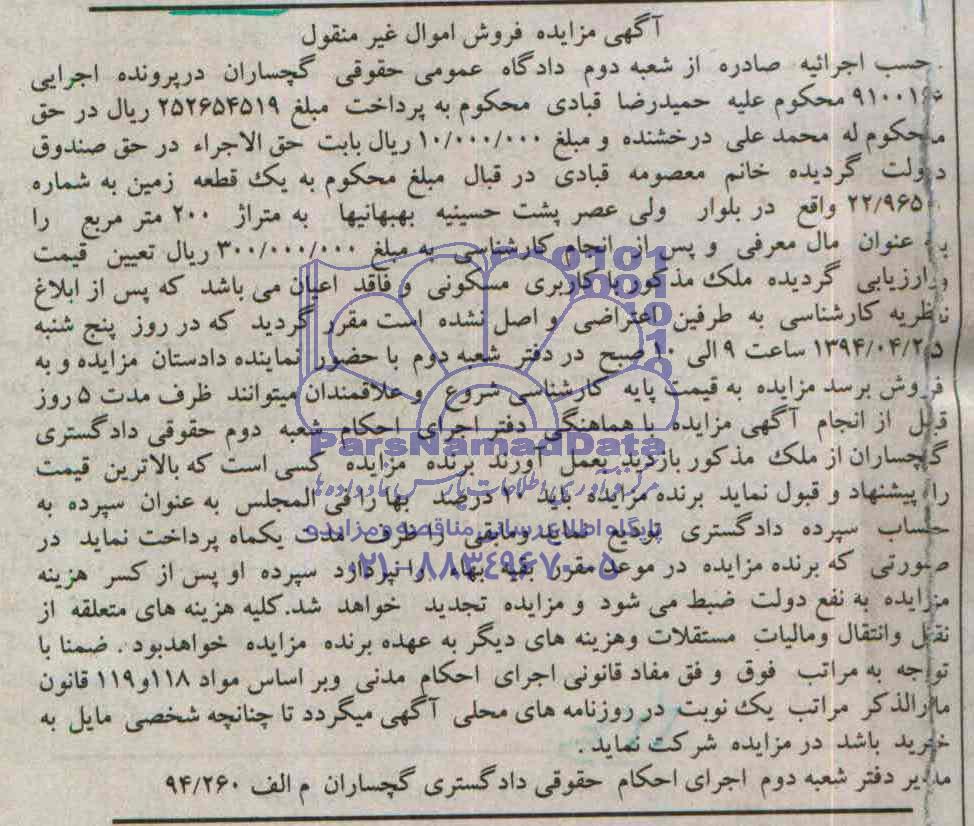 آگهی مزایده فروش اموال غیر منقول
حسب اجرائیه صادره از شعبه دوم دادگاه عمومی حقوقی گچساران درپرونده اجرایی
محکوم علیه حمیدرضا قبادی محکوم به پرداخت مبلغ ۲۵۲۶۵۴۵۱۹ ریال در حق
محکوم له محمد علی درخشنده و مبلغ ۱۰/۰۰۰/۰۰۰ ریال بابت حق الاجراء در حق صندوق
دولت گردیده خانم معصومه قبادی در قبال مبلغ محکوم به یک قطعه زمین به شماره
۲۲/۹۶۵ واقع در بلوار ولی عصر پشت حسینیه بهبهانیها به متراژ ۲۰۰ متر مربع را
به عنوان مال معرفی و پس از انجام کارشناسی به مبلغ ۳۰۰/۰۰۰/۰۰۰ ریال تعیین قیمت
وارزیابی گردیده ملک مذکور با کاربری مسکونی و فاقد اعیان می باشد که پس از ابلاغ
نظریه کارشناسی به طرفین اعتراضی و اصل نشده است مقرر گردید که در روز پنج شنبه
۱۳۹۴/۰۴/۲۵ ساعت ۹ الی ۱۰ صبح در دفتر شعبه دوم با حضور نماینده دادستان مزایده و به
فروش برسد مزایده به قیمت پایه کارشناسی شروع و علاقمندان میتوانند ظرف مدت ۵ روز
قبل از انجام آگهی مزایده با هماهنگی دفتر اجرای احکام شعبه دوم حقوقی دادگستری
گچساران از ملک مذکور بازدید بعمل آورند برنده مزایده کسی است که بالاترین قیمت
را پیشنهاد و قبول نماید برنده مزایده باید ۱۰ درصد بها را فی المجلس به عنوان سپرده به
حساب سپرده دادگستری تودیع نماید ومابقی را ظرف مدت یکماه پرداخت نماید در
صورتی که برنده مزایده در موعد مقرر بقیه بهاء را نپردازد سپرده او پس از کسر هزینه
مزایده به نفع دولت ضبط می شود و مزایده تجدید خواهد شد.کلیه هزینه های متعلقه از
نقل وانتقال ومالیات مستقلات وهزینه های دیگر به عهده برنده مزایده خواهدبود . ضمنا با
توجه به مراتب فوق و فق مفاد قانونی اجرای احکام مدنی وبر اساس مواد ۱۱۸و۱۱۹ قانون
مارالذکر مراتب یک نوبت در روزنامه های محلی آگهی میگردد تا چنانچه شخصی مایل به
خرید باشد در مزایده شرکت نماید .
مدیر دفتر شعبه دوم اجرای احکام حقوقی دادگستری گچساران م الف ۹۴/۲۶۰
ParsNamadData
پایگاه اطلاع رسانی مناقصه و مزایده
۰۲۱-۸۸۳۴۹۶۷۰-۵